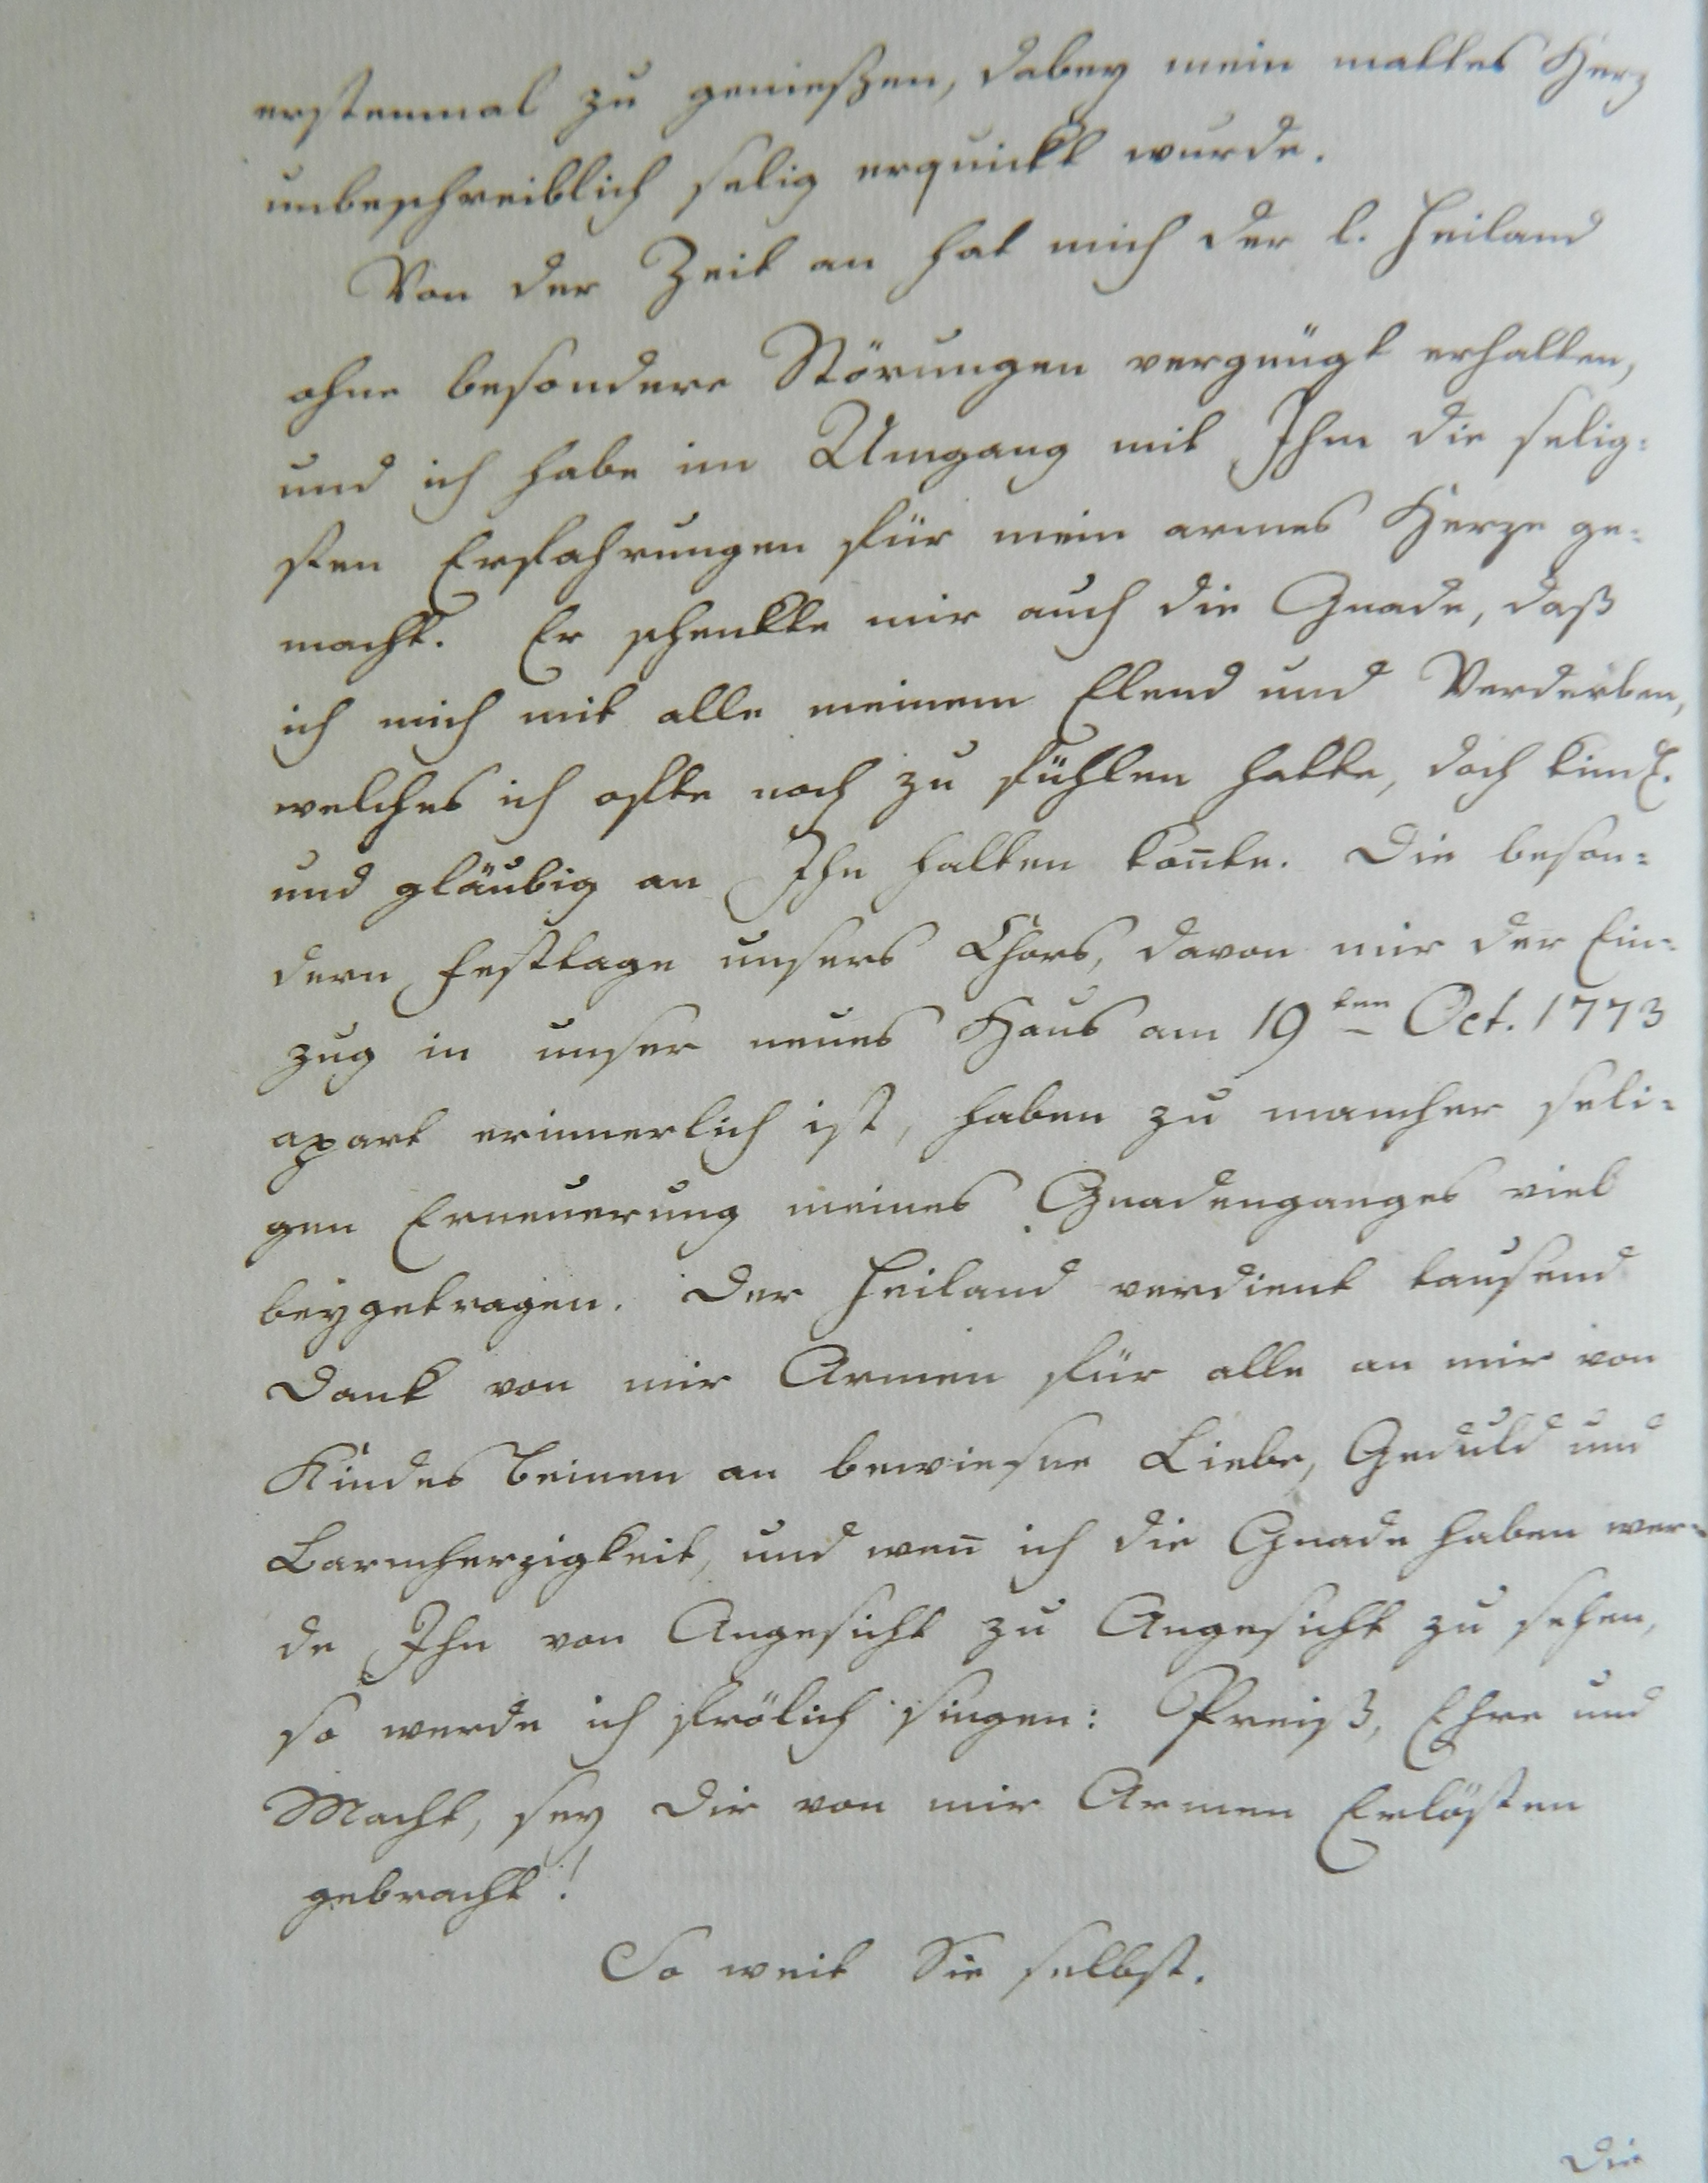 erstenmal zu genießen, dabey mein mattes Herz
unbeschreiblich selig erquickt wurde.
Von der Zeit an hat mich der l. Heiland
ohne besondere Störungen vergnügt erhalten,
und ich habe im Umgang mit Ihm die selig-
sten Erfahrungen für mein armes Herze ge-
macht. Er schenkte mir auch die Gnade, daß
ich mich mit alle meinem Elend und Verderben,
welches ich ofte noch zu fühlen hatte, doch kindl.
und gläubig an Ihn halten kon̅te. Die beson-
dern Festtage unsers Chors, davon mir der Ein-
zug in unser neues Haus am 19ten Oct. 1773
apart erinnerlich ist, haben zu mancher seli-
gen Erneuerung meines Gnadenganges viel
beygetragen. Der Heiland verdient tausend
Dank von mir Armen für alle an mir von
Kindes Beinen an bewiesne Liebe, Geduld und
Barmherzigkeit, und wen̅ ich die Gnade haben wer-
de Ihn von Angesicht zu Angesicht zu sehen,
so werde ich frölich singen: Preiß, Ehre und
Macht, sey Dir von mir Armen Erlösten
gebracht!
So weit Sie selbst.
Die